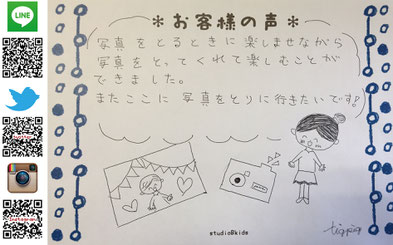 LINE
＊お客様の声＊
写真をとるときに楽しませながら
写真をとってくれて楽しむことが
できました。
またここに 写真をとりに行きたいです!
twitter
Instagram
studio8kids